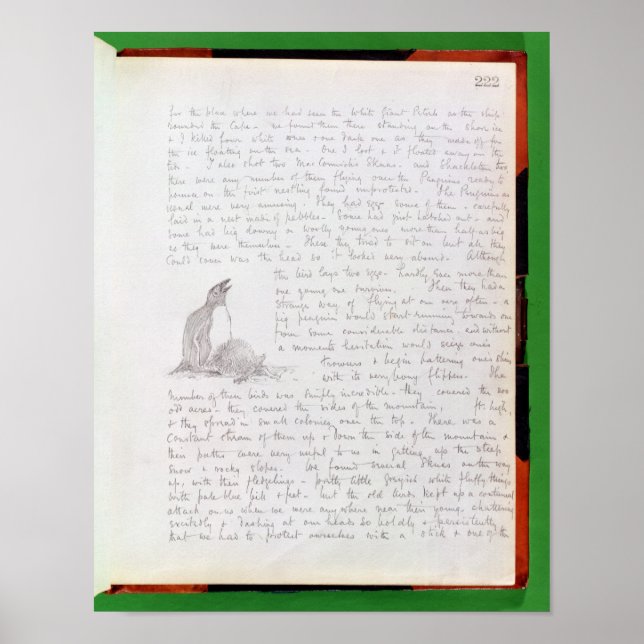 222
for the place where we had seen the White Giant Petrels as the ship
rounded the Cape - we found them there standing on the shore ice
& I killed four white ones & one dark one as they made off for
the ice floating on the sea. One I lost & it floated away on the
tide. I also shot two MacCormick's Skuas - and Shackleton two
there were any number of them flying over the Penguins ready to
pounce on the first nestling found unprotected. The Penguins as
usual were very amusing. They had eggs some of them, carefully
laid in a nest made of pebbles - Some had just hatched out - and
some had big downy or woolly young ones more than half as big
as they were themselves - These they tried to sit on but all they
could cover was the head so it looked very absurd. Although
this bird lays two eggs - hardly ever more than
one young one survives. Then they had a
strange way of flying at one very often - a
big penguin would start running towards one
from some considerable distance - and without
a moments hesitation would seize one's
trowsers & begin battering one's shins
with its very bony flippers. The
number of these birds was simply incredible - they covered the 200
odd acres - they covered the sides of the mountain, ft. high,
& they spread in small colonies over the top. There was a
constant stream of them up & down the side of the mountain &
their paths were very useful to us in getting up the steep
snow & rocky slopes. We found several Skuas on the way
up, with their fledgelings - pretty little greyish white fluffy things
with pale blue bill & feet - but the old birds kept up a continual
attack on us when we were any where near their young, chattering
excitedly & dashing at our heads so boldly & persistently
that we had to protect ourselves with a stick & one of the